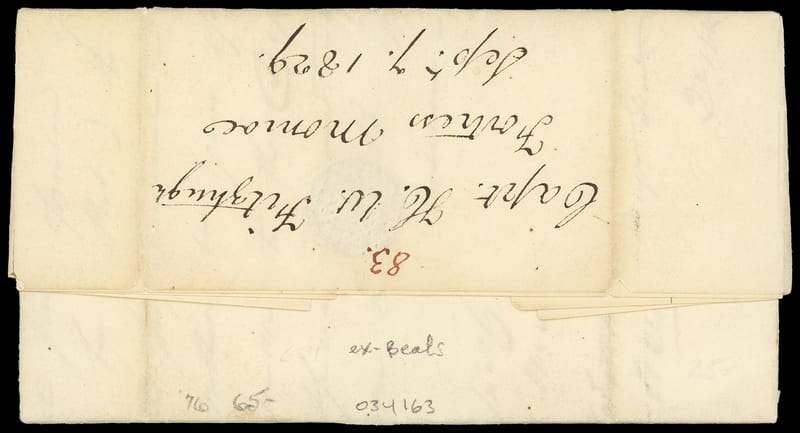 83.
Capt. H. W. Fitzhugh
Fortress Monroe
Sept. 7. 1829.
ex-Beals
76 65-
034163
25-